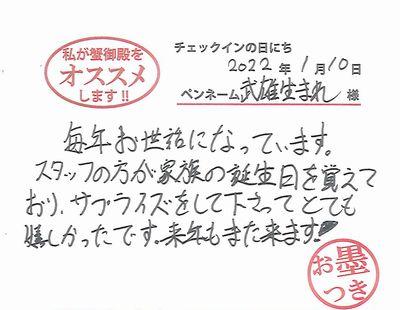 私が蟹御殿を
オススメ
します!!
チェックインの日にち
2022年1月10日
ペンネーム 武雄生まれ 様
毎年お世話になっています。
スタッフの方が家族の誕生日を覚えて
おり、サプライズをして下さってとても
嬉しかったです。来年もまた来ます!
お墨
つき